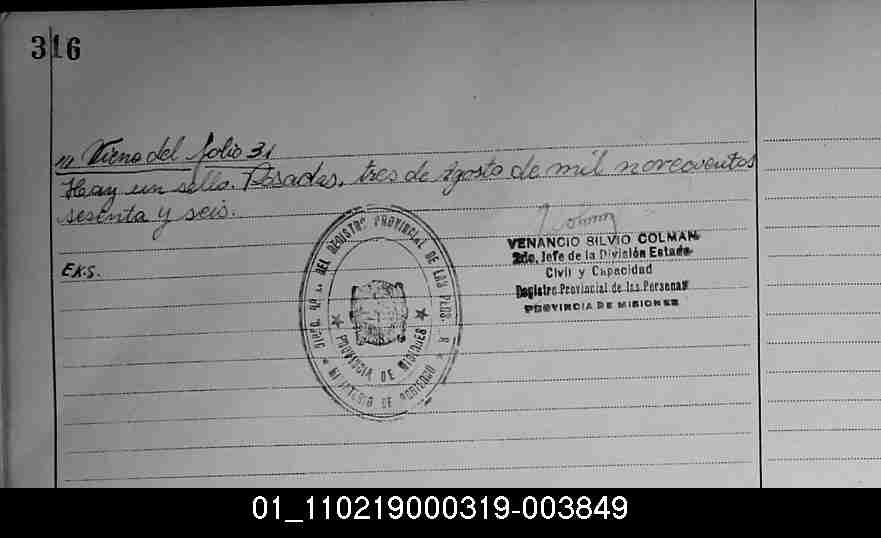 316
/// Viene del folio 31
Hay un sello. Posadas, tres de Agosto de mil novecientos
sesenta y seis.
EKS.
VENANCIO SILVIO COLMAN
2do. Jefe de la División Estado
Civil y Capacidad
Registro Provincial de las Personas
PROVINCIA DE MISIONES
DEL REGISTRO PROVINCIAL DE LAS PERS.
PROVINCIA DE MISIONES
MINISTERIO DE GOBIERNO
01_110219000319-003849